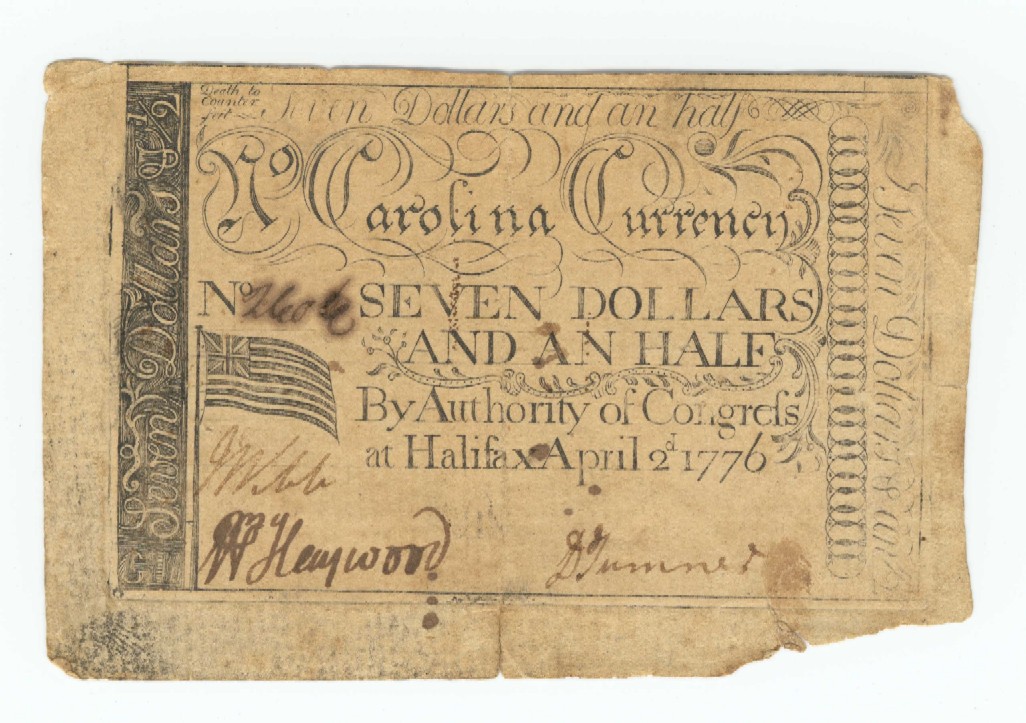 Death to
Counter
feit
Seven Dollars and an half
No Carolina Currency
No 2606 SEVEN DOLLARS
AND AN HALF
By Authority of Congreſs
at Halifax April 2d 1776
J Webb
Wm Haywood
D Sumner
Seven Dollars & 1/2
Seven Dollars &